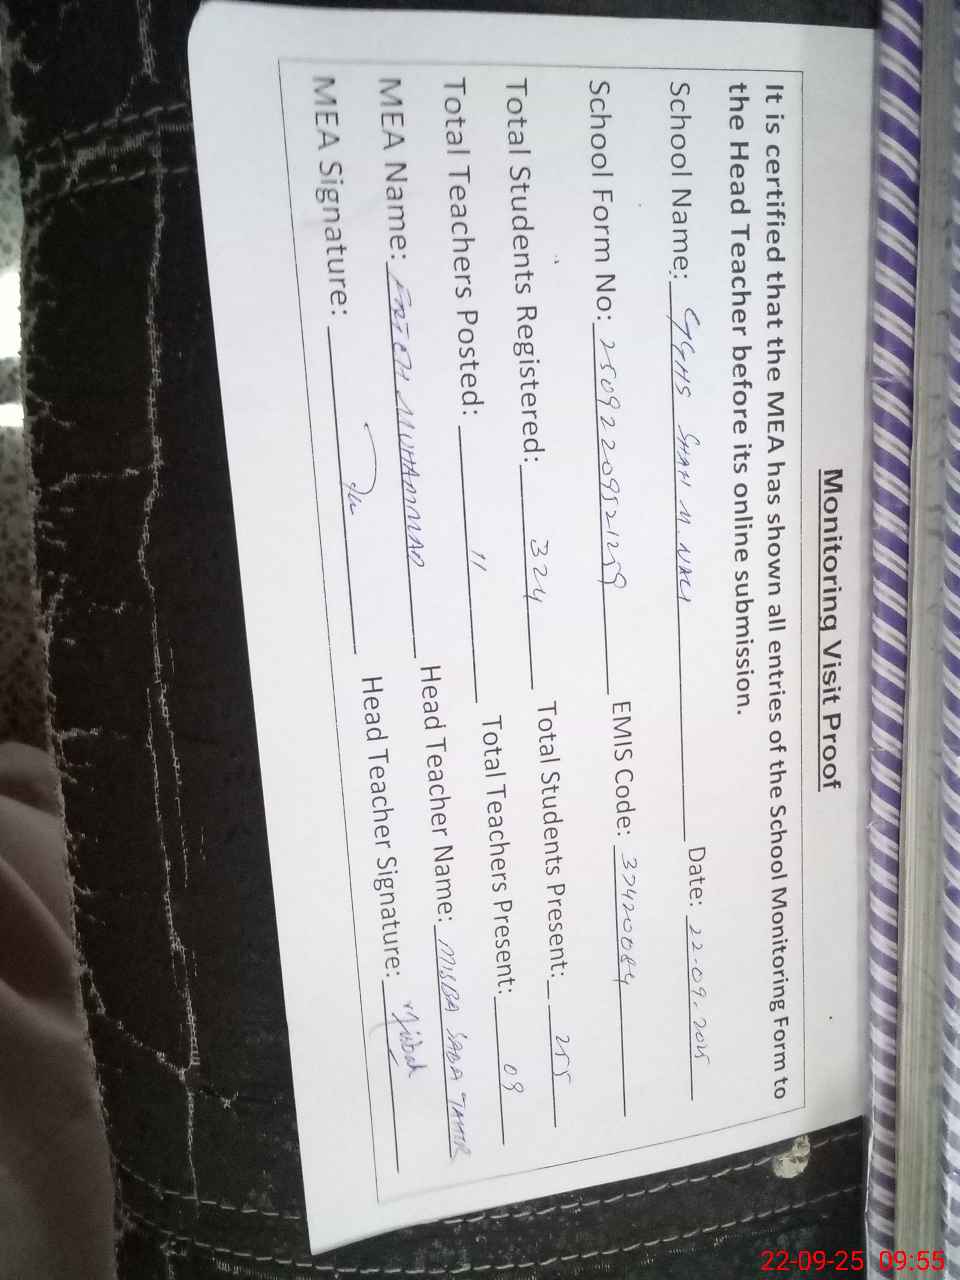 Monitoring Visit Proof
It is certified that the MEA has shown all entries of the School Monitoring Form to
the Head Teacher before its online submission.
School Name: GGHS SHAH M WALI Date: 22-09-2025
School Form No: 25092209521259 EMIS Code: 37420084
Total Students Registered: 324 Total Students Present: 255
Total Teachers Posted: 11 Total Teachers Present: 09
MEA Name: MUHAMMAD Head Teacher Name: MISBA SABA TAHIR
MEA Signature: Head Teacher Signature: Misbah
22-09-25 09:55